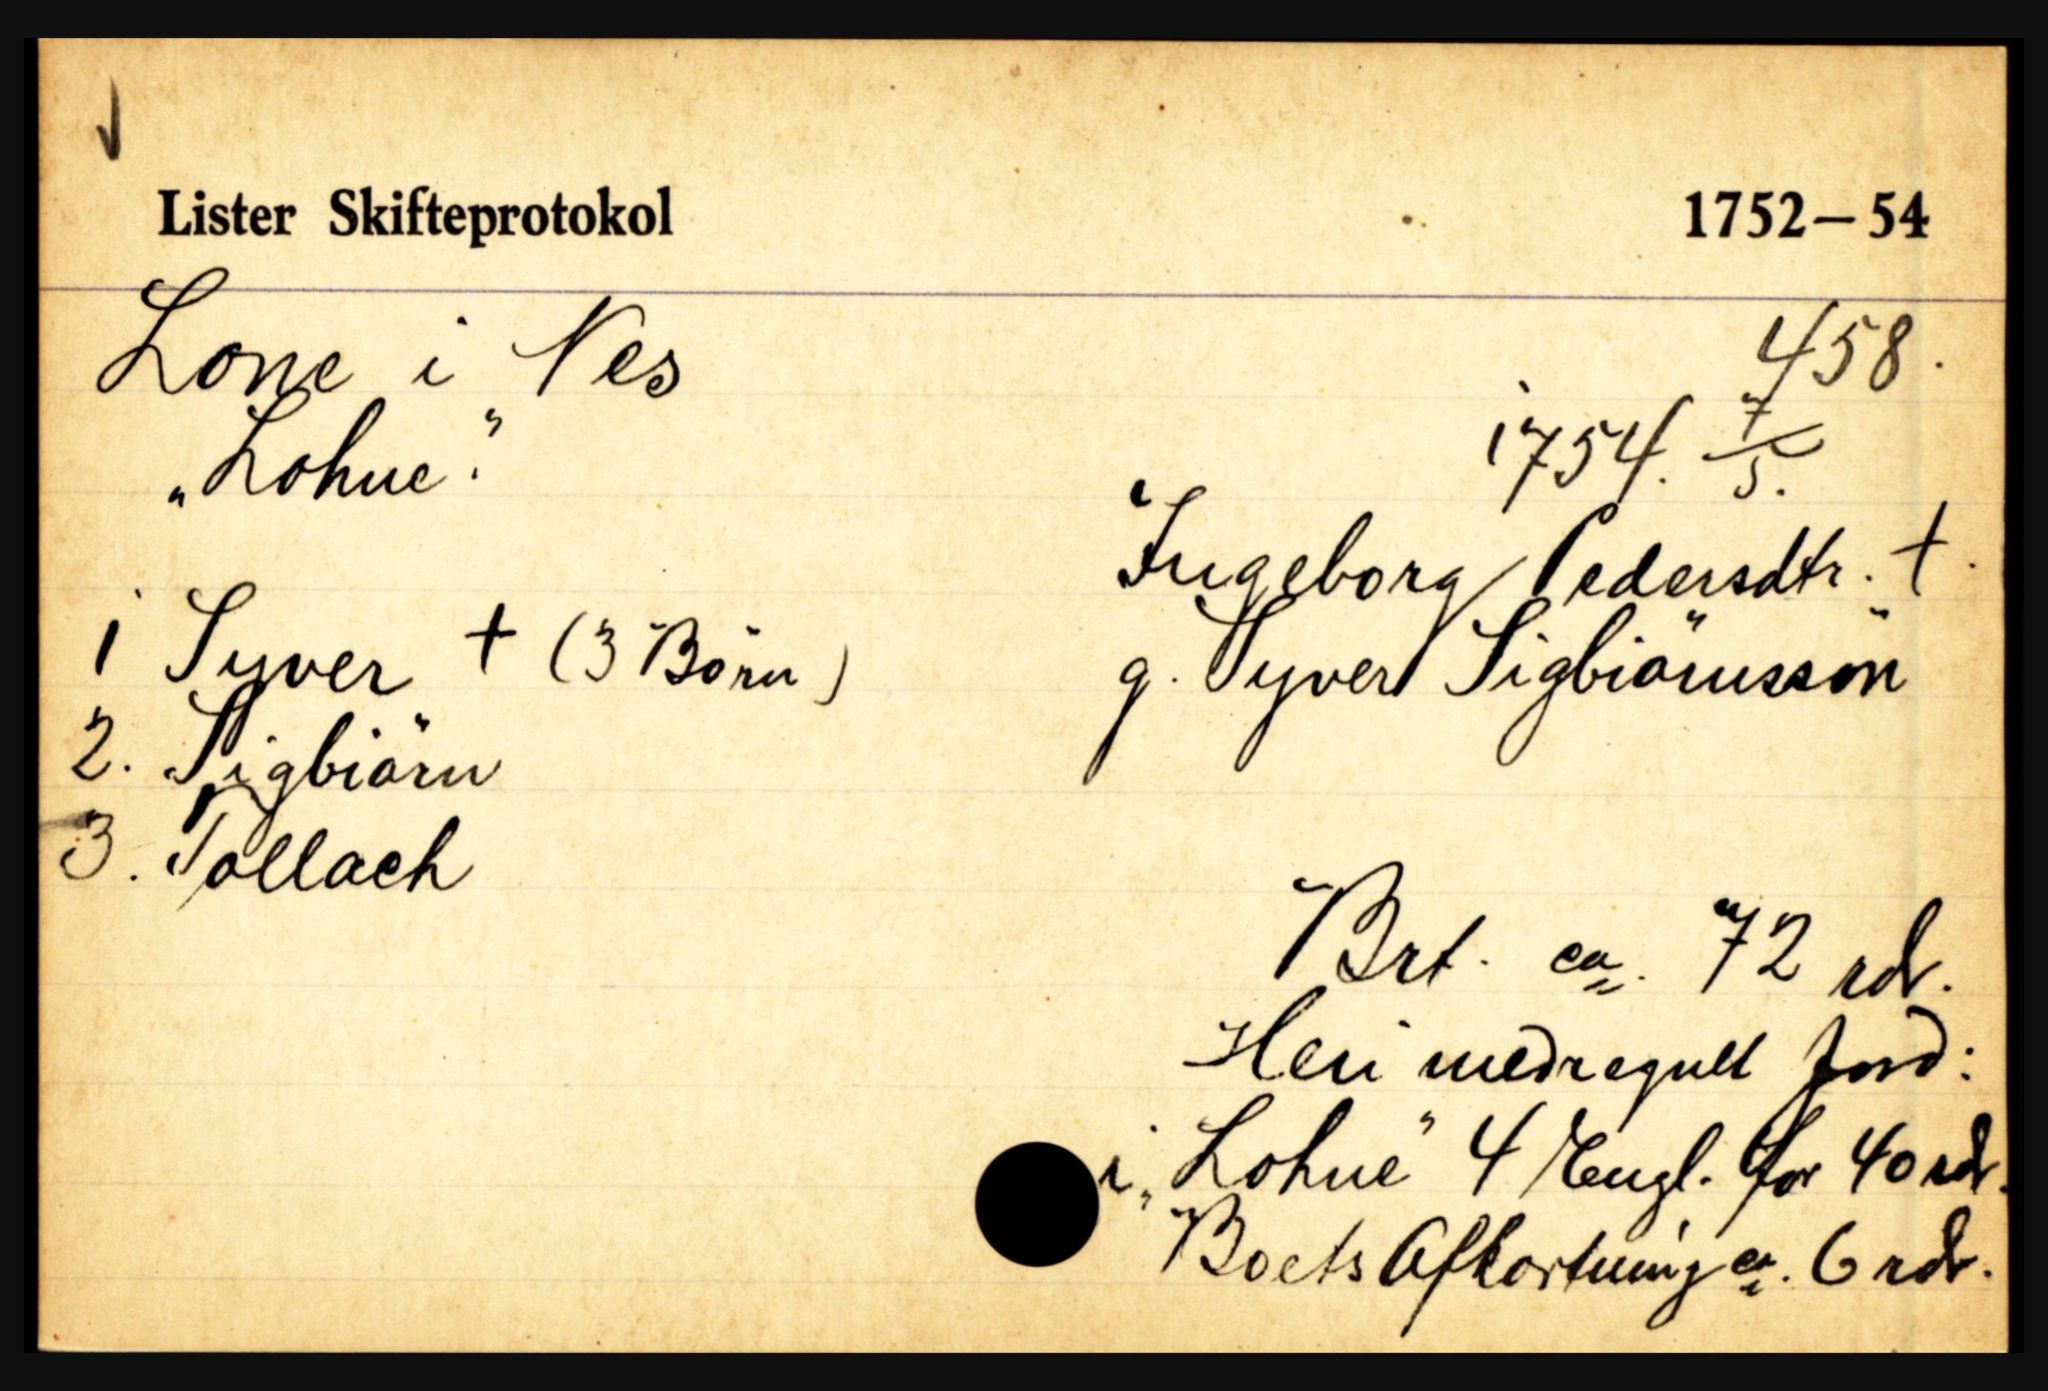 Lister Skifteprotokol 1752—54
Lone i Nes
458.
„Lohne."
1754. 7/5.
Ingeborg Pedersdtr. †.
1 Syver † (3 Börn)
g. Syver Sigbiörnssön
2. Sigbiörn
3. Tollach
Brt. ca. 72 rdr.
Heri medregnet Jord:
i „Lohne" 4 Engl. for 40 rdr.
Boets Afkortning ca. 6 rdr.